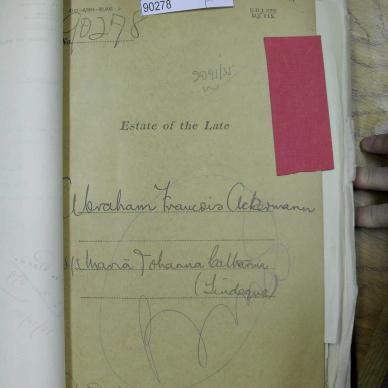 90278
No. 90278
2091/35
Estate of the Late
Abraham Francois Ackermann
Maria Johanna Catharina
(Lindeque)